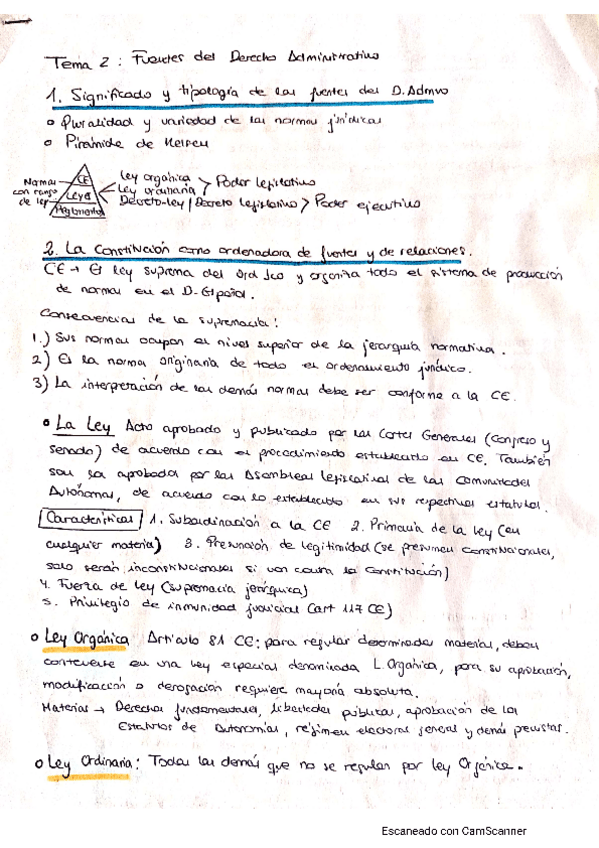 Tema 2 : Fuentes del Derecho Administrativo
1. Significado y tipología de las fuentes del D. Admvo
o Pluralidad y variedad de las normas jurídicas
o Pirámide de Kelsen
Normas con rango de ley
CE
Leyes
Reglamentos
Ley orgánica
Ley ordinaria > Poder legislativo
Decreto-ley / Decreto legislativo > Poder ejecutivo
2. La Constitución como ordenadora de fuentes y de relaciones.
CE → Es ley suprema del Ord Jco y organiza todo el sistema de producción
de normas en el D. Español.
Consecuencias de la supremacía :
1.) Sus normas ocupan el nivel superior de la jerarquía normativa.
2) Es la norma originaria de todo el ordenamiento jurídico.
3) La interpretación de las demás normas debe ser conforme a la CE.
• La Ley Acto aprobado y publicado por las Cortes Generales (Congreso y
Senado) de acuerdo con el procedimiento establecido en CE. También
son las aprobadas por las Asambleas legislativas de las Comunidades
Autónomas, de acuerdo con lo establecido en sus respectivos estatutos.
Características 1. Subordinación a la CE 2. Primacía de la ley (en
cualquier materia) 3. Presunción de legitimidad (se presumen constitucionales,
solo serán inconstitucionales si van contra la Constitución)
4. Fuerza de ley (supremacía jerárquica)
5. Privilegio de inmunidad judicial (art 117 CE)
o Ley Orgánica Artículo 81 CE: para regular determinadas materias, deben
contenerse en una ley especial denominada L. Orgánica, para su aprobación,
modificación o derogación requiere mayoría absoluta.
Materias → Derechos fundamentales, libertades públicas, aprobación de los
Estatutos de Autonomías, régimen electoral general y demás previstas.
o Ley Ordinaria: Todas las demás que no se regulan por ley Orgánica.
Escaneado con CamScanner